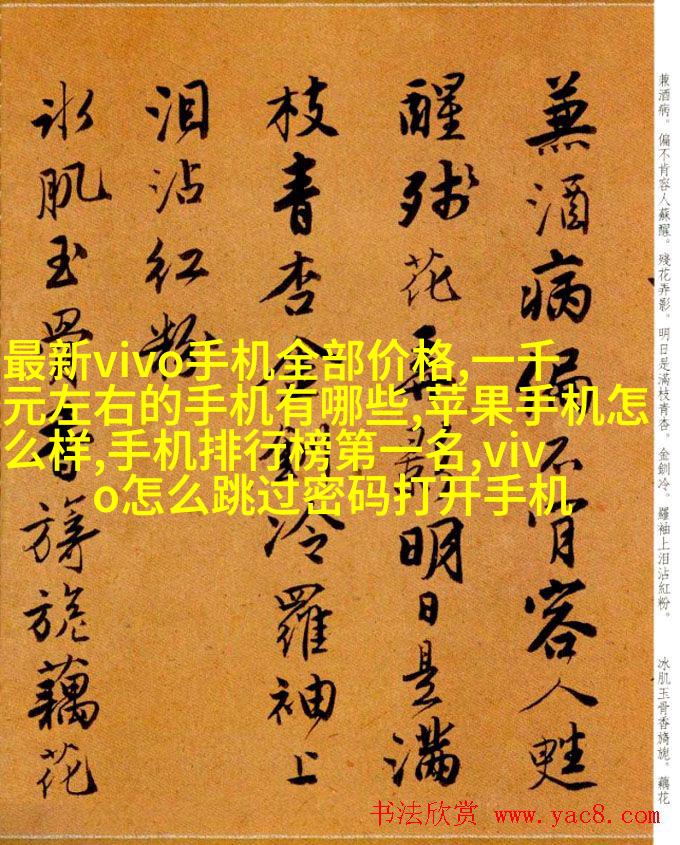 兼酒病。偏不肯容人蘇醒。殘花弄影。明日是滿枝青杏。金釧冷。羅袖上泪沾紅粉。 冰肌玉骨香旖旎。藕花
兼酒病偏不肯容人甦
醒殘花弄影明日是滿
枝青杏金釧冷羅袖上
泪沾紅粉
冰肌玉骨香旖旎藕花
最新vivo手机全部价格,一千
元左右的手机有哪些,苹果手机怎
么样,手机排行榜第一名,viv
o怎么跳过密码打开手机
书法欣赏 www.yac8.com